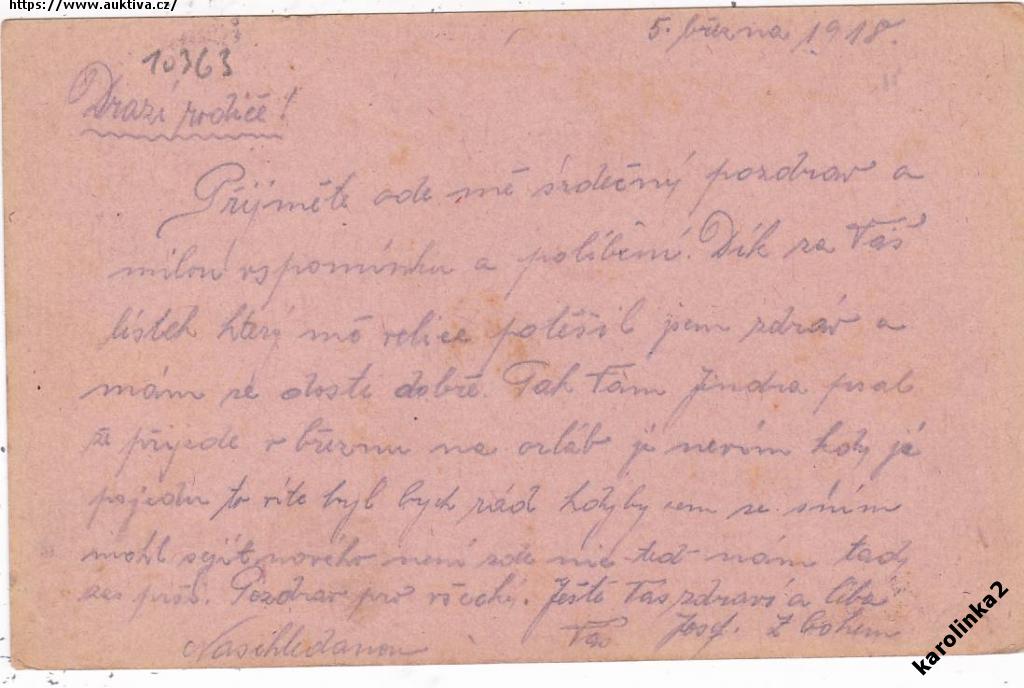 https://www.auktiva.cz/
5. března 1918.
10363
Drazí rodiče!
Přijměte ode mě srdečný pozdrav a
milou vzpomínku a políbění. Dík za Váš
lístek který mě velice potěšil jsem zdráv a
mám se dosti dobře. Tak Vám Jindra psal
že přijede v březnu na orláb já nevím kdy já
pojedu to víte byl bych rád kdyby sem se s ním
mohl sejít nového není zde nic teď nám tady
zas prší. Pozdrav pro všechy. Ještě Vás zdraví a líbá
Naschledanou Váš Josef. Z Bohem
karolinka2